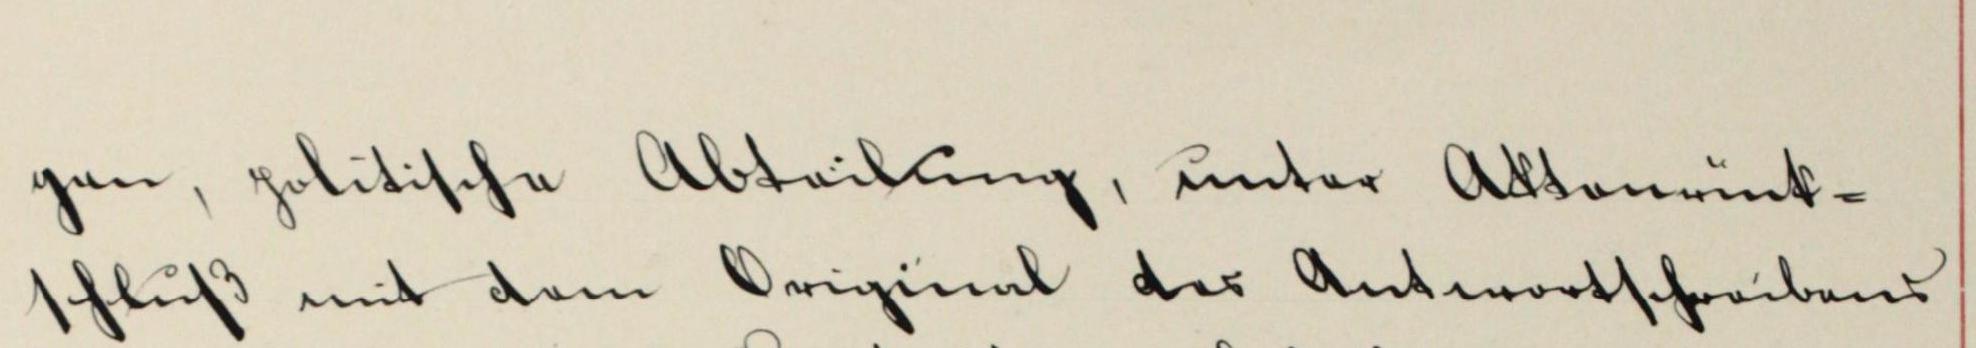 gen, politische Abteilung, unter Aktenrück-
schluß mit dem Original des Antwortschreibens